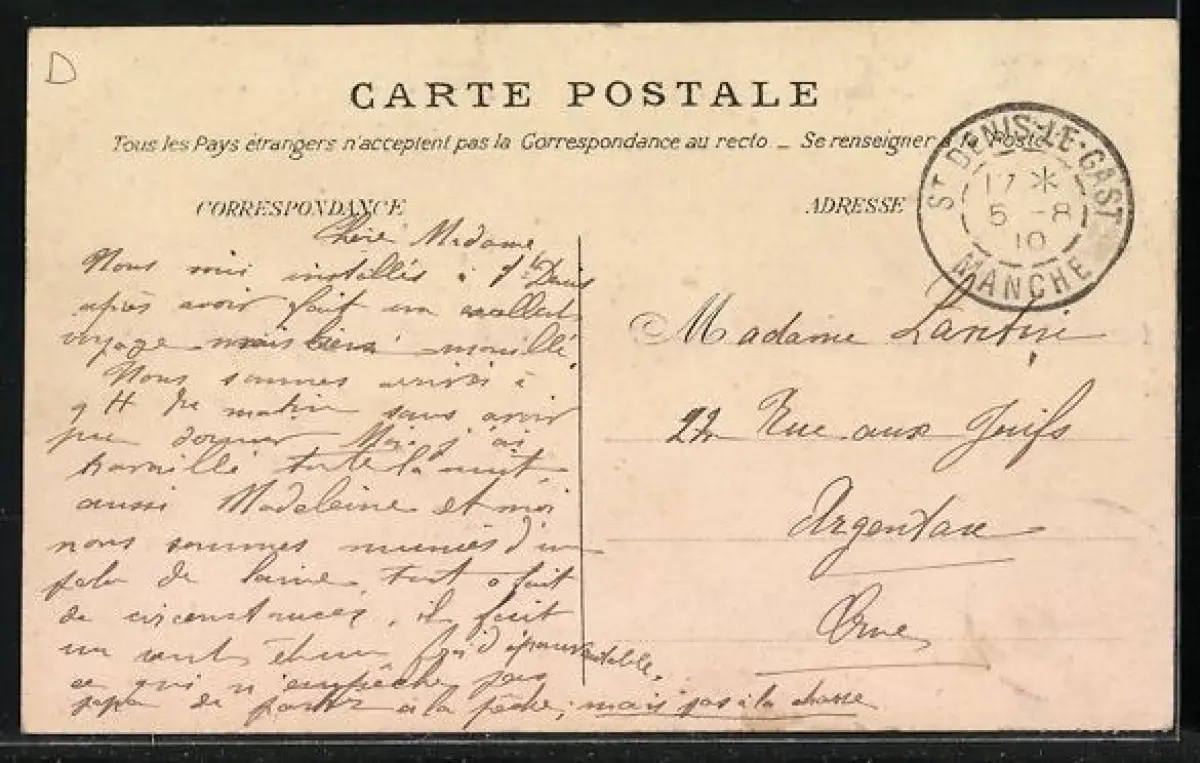 D
CARTE POSTALE
Tous les Pays étrangers n'acceptent pas la Correspondance au recto _ Se renseigner à la Poste
CORRESPONDANCE
ADRESSE
ST DENIS-LE-GAST
17 *
5 -8
10
MANCHE
Chère Madame
Nous installés à St Denis
après avoir fait un
voyage mais bien mouillé.
Nous sommes arrivés à
9 H du matin sans avoir
pu dormir. Moi j'ai
travaillé toute la nuit
aussi Madeleine et moi
nous sommes munies d'un
de laine tout a fait
de circonstances, il fait
un vent et un froid épouvantable.
ce qui n'empêche pas
papa de partir à la pêche; mais pas à la chasse
Madame
22 Rue aux Juifs
Argentan
Orne